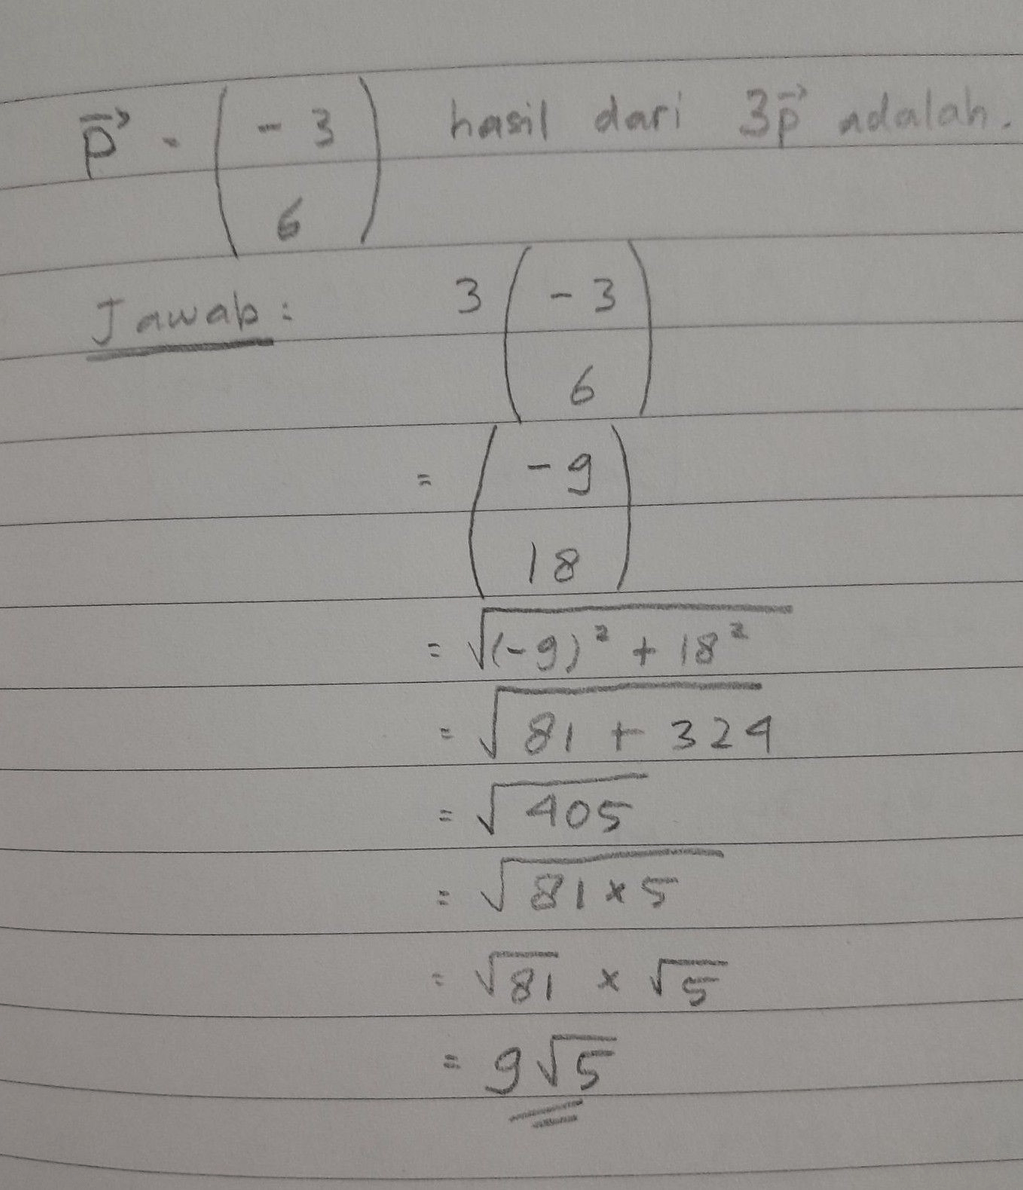 p⃗ = ( -3 6 ) hasil dari 3p⃗ adalah.
Jawab : 3 ( -3 6 )
= ( -9 18 )
= √(-9)² + 18²
= √81 + 324
= √405
= √81 × 5
= √81 × √5
= 9√5